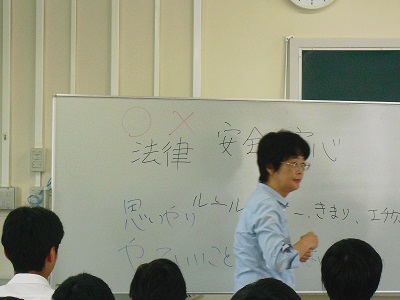 ○ ×
法律 安全 安心
思いやり ルール きまり、エチケ
やさしいこと